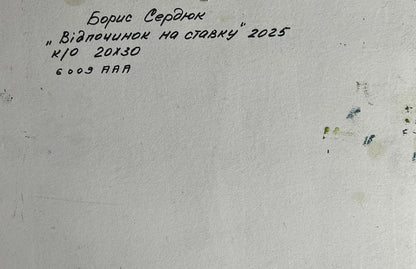 Борис Сердюк
„Відпочинок на ставку" 2025
к/о 20х30
6009 ААА